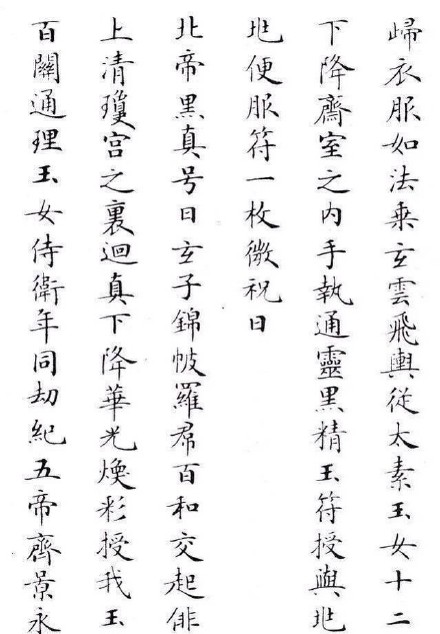 歸衣服如法乗玄雲飛輿從太素玉女十二
下降齋室之內手執通靈黑精玉符授與地
地便服符一枚微祝曰
北帝黑真号曰玄子錦帔羅帬百和交起俳
上清瓊宮之裏迴真下降華光煥彩授我玉
百關通理玉女侍衛年同劫紀五帝齊景永